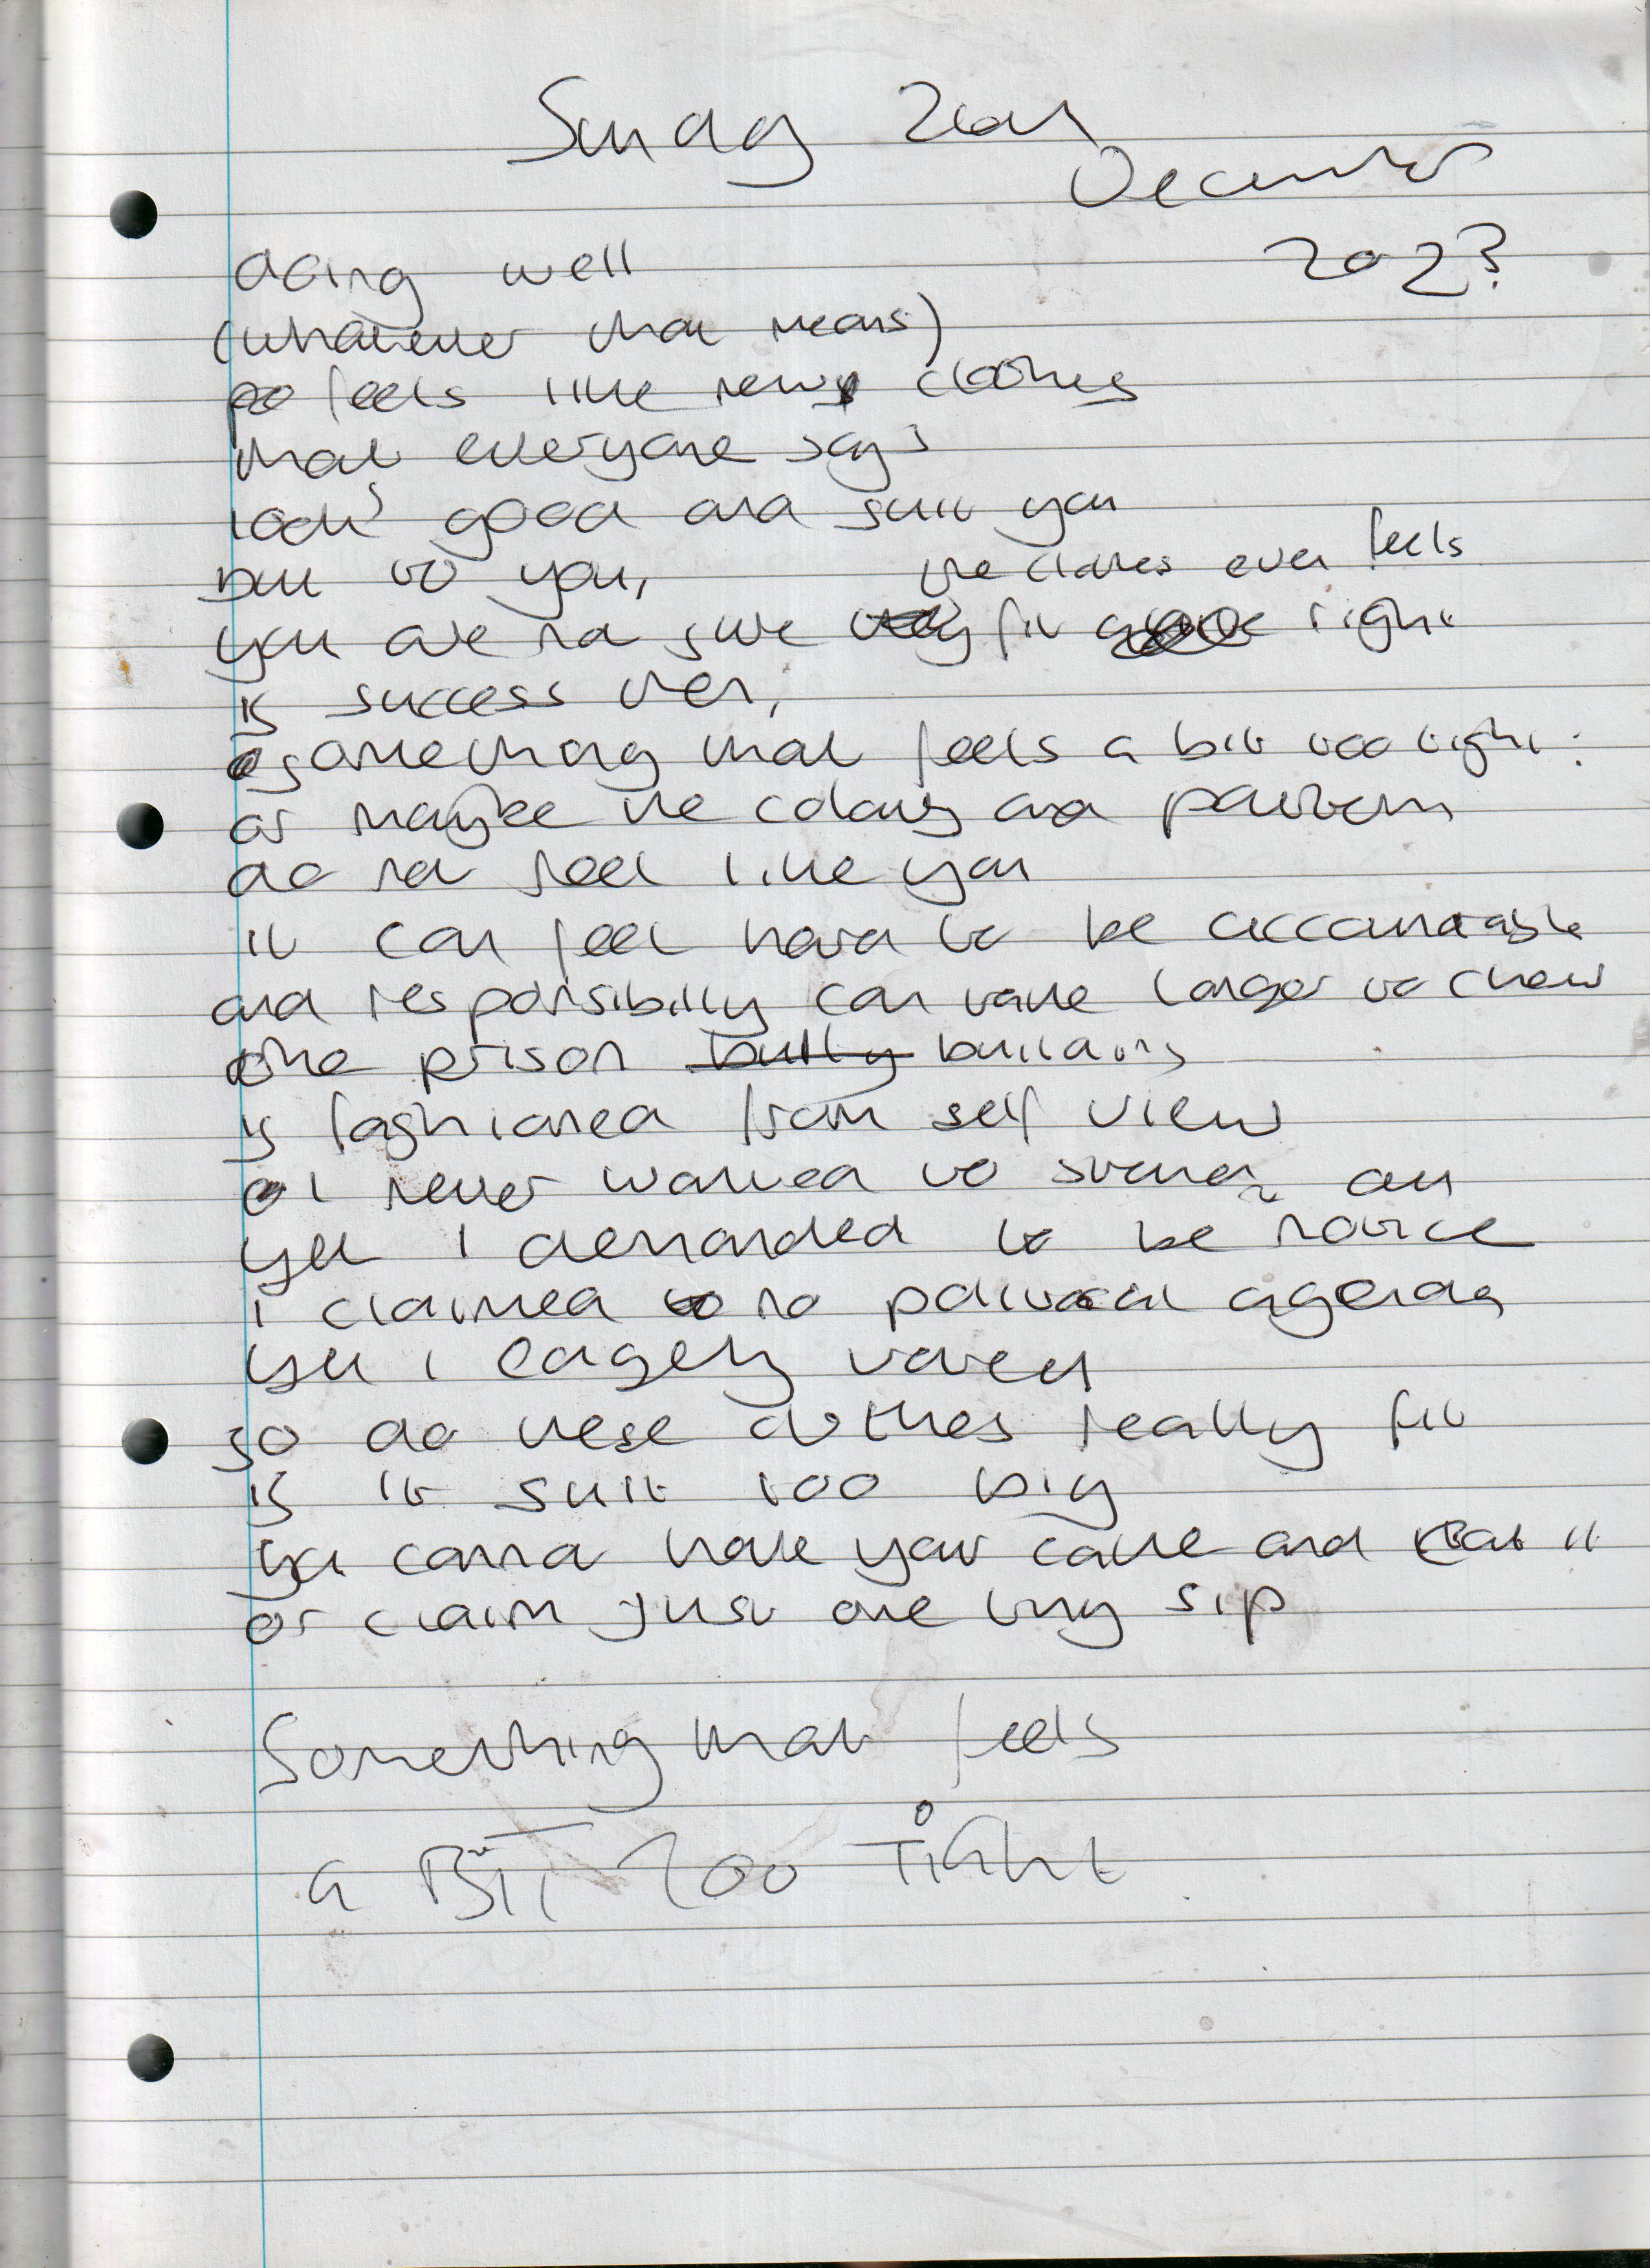 Sunday
December
2023
doing well
(whatever that means)
feels like new clothes
that everyone says
look's good and suit you
but to you,
the clothes even feels
you are not sure fit right
is success then,
something that feels a bit too tight:
or maybe the colours and pattern
do not feel like you
it can feel hard to be accountable
and responsibilly can take longer to chew
the prison builty buildings
is fashioned from self view
I never wanted to stand out
yet I demanded to be notice
i claimed no political agenda
yet i eagerly voted
so do these clothes really fit
is it suit too big
you cannot have your cake and eat it
or claim just one tiny sip
Something that feels
a BiT Too TiGht